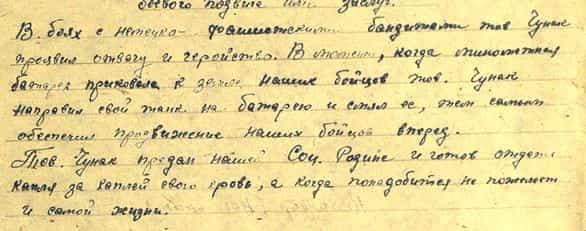 боевого подвига или заслуг.
В боях с немецко-фашистскими бандитами тов Чунак
проявил отвагу и геройство. В момент, когда минометная
батарея приковала к земле наших бойцов тов. Чунак
направил свой танк на батарею и смял ее, тем самым
обеспечил продвижение наших бойцов вперед.
Тов. Чунак предан нашей Соц. Родине и готов отдать
капля за каплей свого кровь, а когда понадобится не пожалеет
и самой жизни.